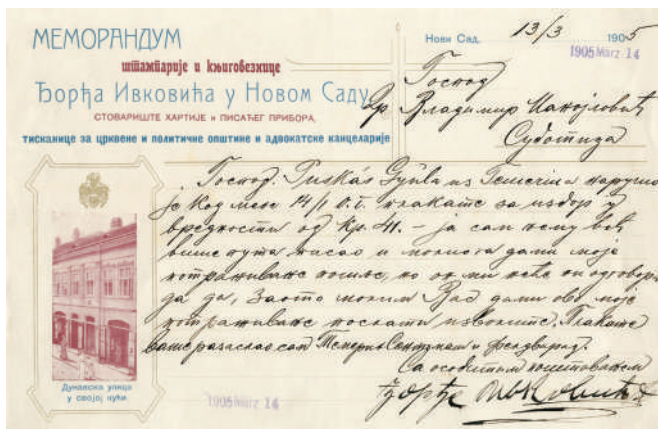 МЕМОРАНДУМ
штампарије и књиговезнице
Ђорђа Ивковића у Новом Саду
СТОВАРИШТЕ ХАРТИЈЕ и ПИСАЋЕГ ПРИБОРА,
тисканице за црквене и политичне општине и адвокатске канцеларије
Нови Сад, 13/3 1905
1905 März 14
Господ
Др Владимир Манојловић
Суботица
Господ. Puskás Gyula из Темерина наручио
је код мене 14/1 о.г. плакате за избор у
вредности од Кр. 41. – ја сам њему већ
више пута писао и молио га да ми моје
потраживање пошље, но он ми неће ни одговора
да да, Зато молим Вас да ми ово моје
потраживање послати изволите. Плакате
сам Темерин и
Са особитим поштовањем
Ђорђе Ивковић
Дунавска улица
у својој кући
1905 März 14